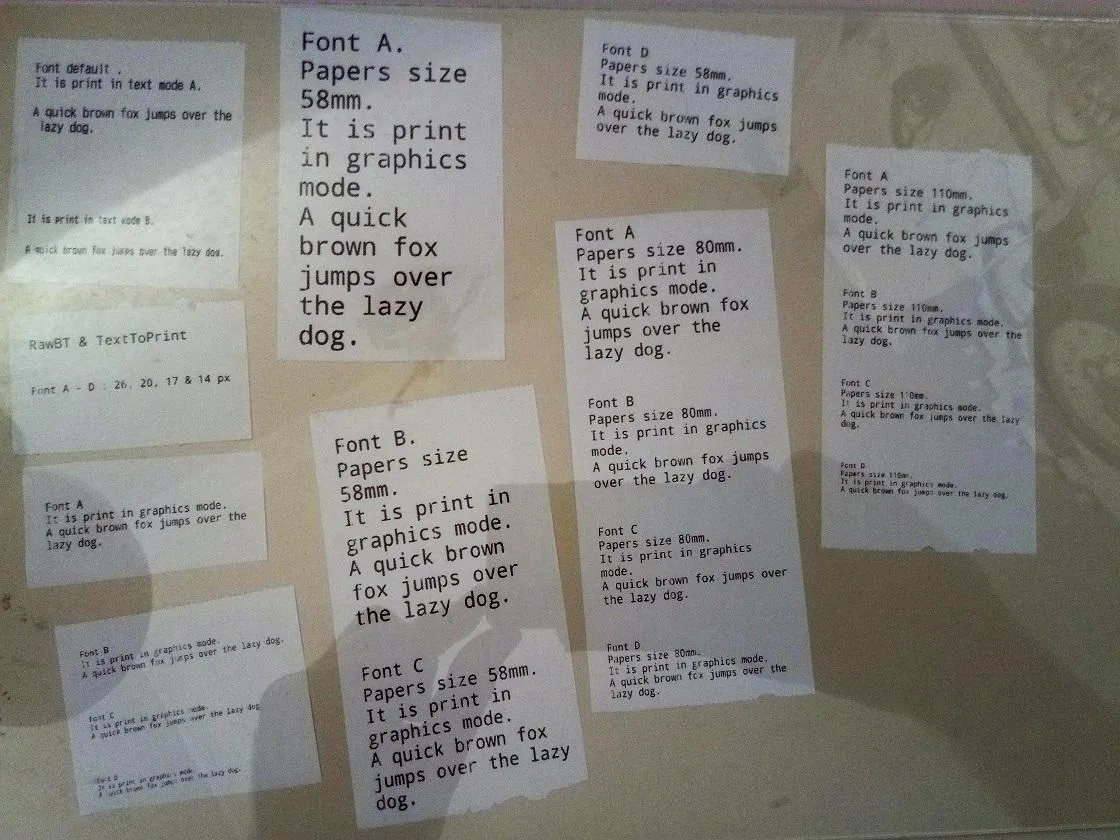 Font default .
It is print in text mode A.
A quick brown fox jumps over the
lazy dog.
It is print in text mode B.
A quick brown fox jumps over the lazy dog.
RawBT & TextToPrint
Font A - D : 26, 20, 17 & 14 px
Font A
It is print in graphics mode.
A quick brown fox jumps over the
lazy dog.
Font B
It is print in graphics mode.
A quick brown fox jumps over the lazy dog.
Font C
It is print in graphics mode.
A quick brown fox jumps over the lazy dog.
Font D
It is print in graphics mode.
A quick brown fox jumps over the lazy dog.
Font A.
Papers size
58mm.
It is print
in graphics
mode.
A quick
brown fox
jumps over
the lazy
dog.
Font B.
Papers size
58mm.
It is print in
graphics mode.
A quick brown
fox jumps over
the lazy dog.
Font C
Papers size 58mm.
It is print in
graphics mode.
A quick brown fox
jumps over the lazy
dog.
Font D
Papers size 58mm.
It is print in graphics
mode.
A quick brown fox jumps
over the lazy dog.
Font A
Papers size 80mm.
It is print in
graphics mode.
A quick brown fox
jumps over the
lazy dog.
Font B
Papers size 80mm.
It is print in graphics
mode.
A quick brown fox jumps
over the lazy dog.
Font C
Papers size 80mm.
It is print in graphics
mode.
A quick brown fox jumps over
the lazy dog.
Font D
Papers size 80mm.
It is print in graphics mode.
A quick brown fox jumps over the
lazy dog.
Font A
Papers size 110mm.
It is print in graphics
mode.
A quick brown fox jumps
over the lazy dog.
Font B
Papers size 110mm.
It is print in graphics mode.
A quick brown fox jumps over the
lazy dog.
Font C
Papers size 110mm.
It is print in graphics mode.
A quick brown fox jumps over the lazy
dog.
Font D
Papers size 110mm.
It is print in graphics mode.
A quick brown fox jumps over the lazy dog.